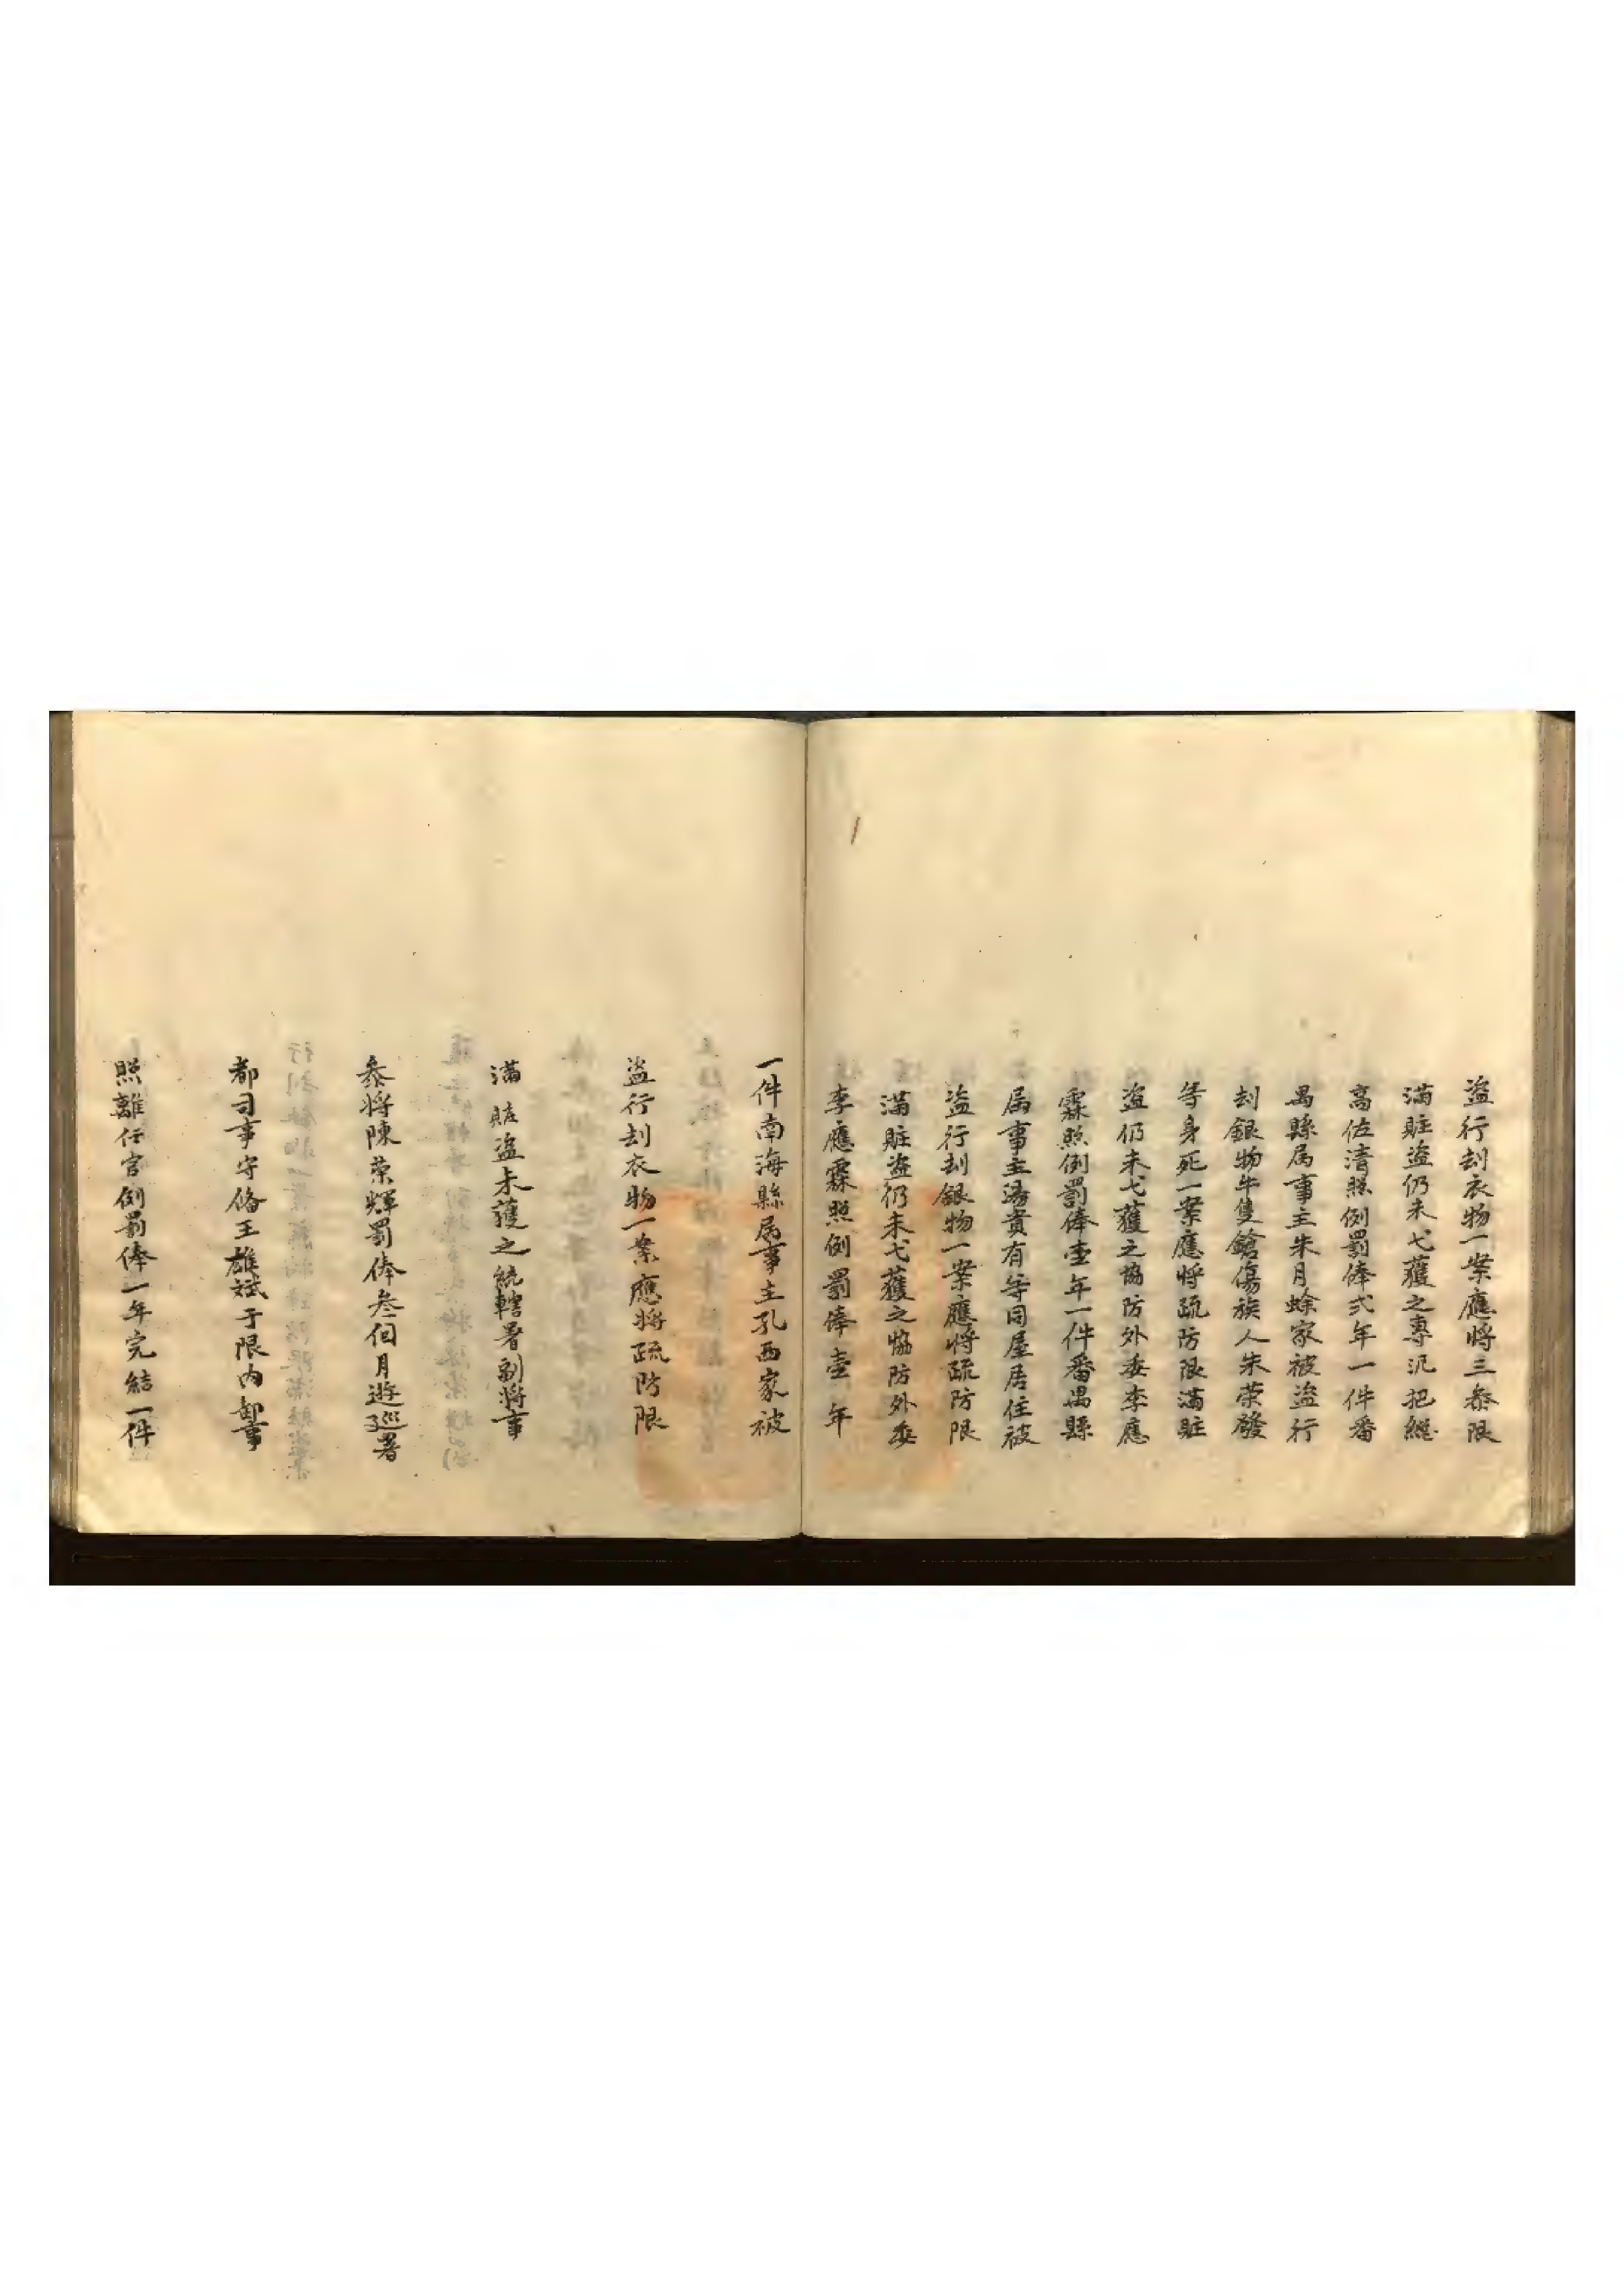 盗行刦衣物一案應將三叅限
滿賍盗仍未弋獲之專汛把總
高佐清照例罰俸弍年一件番
禺縣属事主朱月蜍家被盗行
刦銀物牛隻鎗傷族人朱荣發
等身死一案應將疏防限滿賍
盗仍未弋獲之協防外委李應
霖照例罰俸壹年一件番禺縣
属事主湯貴有等同屋居住被
盗行刦銀物一案應將疏防限
滿賍盗仍未弋獲之協防外委
李應霖照例罰俸壹年
一件南海縣属事主孔西家被
盗行刦衣物一案應將疏防限
滿賍盗未獲之統轄署副將事
叅將陳荣輝罰俸叁個月遊巡署
都司事守俻王雄斌于限内卸事
照離任官例罰俸一年完結一件